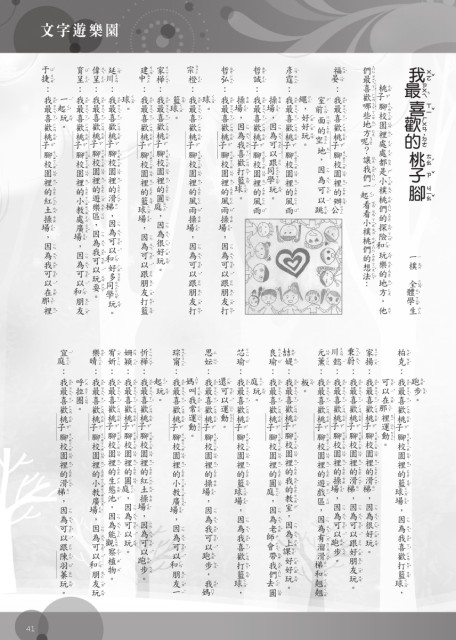 文字遊樂園
我最喜歡的桃子腳
一樸 全體學生
桃子腳校園裡處處都是小樸桃們的探險和玩樂的地方，他
們最喜歡哪些地方呢？讓我們一起看看小樸桃們的想法：
我最喜歡桃子腳校園裡的辦公
室前面的空地，因為可以跳
繩，好好玩。
彥霆：我最喜歡桃子腳校園裡的風雨
操場，因為可以跟同學玩。
哲誠：我最喜歡桃子腳校園裡的風雨
操場，因為我喜歡打籃球。
哲弘：我最喜歡桃子腳校園裡的風雨操場，因為可以跟朋友打
球。
宗橙：我最喜歡桃子腳校園裡的風雨操場，因為可以跟朋友打
籃球。
家樺：我最喜歡桃子腳校園裡的圓庭，因為很好玩。
建中：我最喜歡桃子腳校園裡的籃球場，因為可以跟朋友打籃
球。
廷川：我最喜歡桃子腳校園裡的滑梯，因為可以和好多同學玩
偉呈：我最喜歡桃子腳校園裡的遊樂區，因為我可以玩耍。
育呈：我最喜歡桃子腳校園裡的小教處廣場，因為可以和朋友
一起玩。
于捷：我最喜歡桃子腳校園裡的紅土操場，因為我可以在那裡
跑步。
柏克：我最喜歡桃子腳校園裡的籃球場，因為我喜歡打籃球，
可以在那裡運動。
家揚：我最喜歡桃子腳校園裡的滑梯，因為很好玩。
秉蔚：我最喜歡桃子腳校園裡的滑梯，因為可以跟好朋友玩。
川懿：我最喜歡桃子腳校園裡的操場，因為可以跑步。
元薰：我最喜歡桃子腳校園裡的遊戲區，因為有溜滑梯和翹翹
板。
喆媞：我最喜歡桃子腳校園裡的我的教室，因為上課好好玩。
良瑜：我最喜歡桃子腳校園裡的圓庭，因為老師會帶我們去圓
庭玩。
芯瑜：我最喜歡桃子腳校園裡的籃球場，因為可以打籃球，
還可以運動。
思妘：我最喜歡桃子腳校園裡的操場，因為我可以跑步，我媽
媽叫我常運動。
琮甯：我最喜歡桃子腳校園裡的小教廣場，因為可以和朋友一
起玩。
忻樺：我最喜歡桃子腳校園裡的紅土操場，因為可以跑步。
姍穎：我最喜歡桃子腳校園裡的圓庭，因為可以玩。
宥妍：我最喜歡桃子腳校園裡的生態池，因為能觀察植物。
樂晴：我最喜歡桃子腳校園裡的小教廣場，因為可以和朋友玩
呼拉圈。
宜庭：我最喜歡桃子腳校園裡的滑梯，因為可以跟陳羽蓁玩。
41